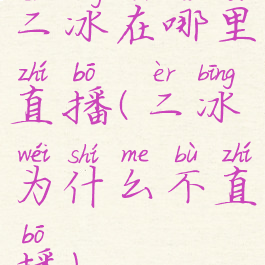 二冰在哪里
zhí bō èr bīng
直播(二冰
wéi shí me bù zhí
为什么不直
bō
播)